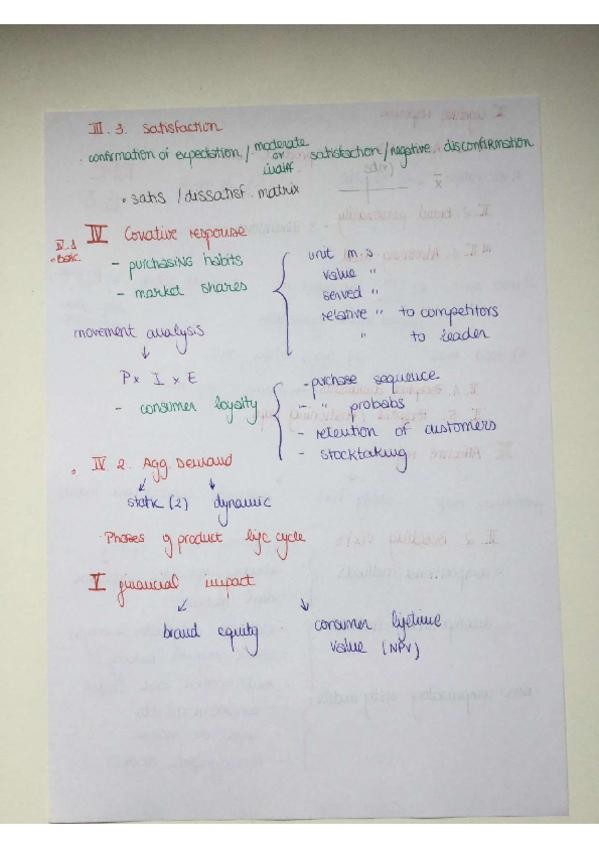 III. 3. Satisfaction
· confirmation of expectation / moderate or indiff satisfaction / negative disconfirmation
• satis / dissatisf. matrix
sd(x)
x̄
IV Conative response
IV.1
• Basic
- purchasing habits
- market shares
unit m s
value "
served "
relative " to competitors
" to leader
movement analysis
↓
P x I x E
- consumer loyalty
- purchase sequence
- " probabs
- retention of customers
- stocktaking
• IV 2. Agg. Demand
static (2) dynamic
· Phases of product life cycle
V financial impact
brand equity
consumer lifetime
value (NPV)